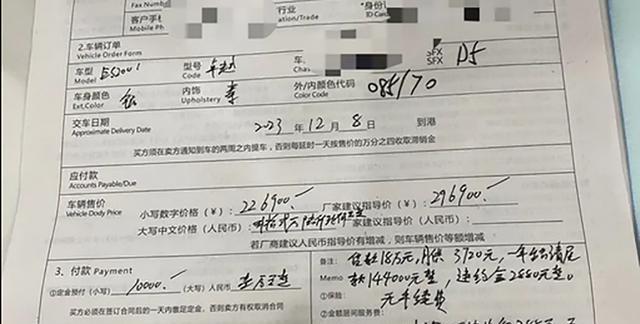 Fax Number
行业
ation/Trade
*身份
ID Card
客户手
Mobile Ph
2.车辆订单
Vehicle Order Form
SFX
SFX D5
车型
Model ES200
型号
Code 卓越
车
Chas
车身颜色
Ext.Color 银
内饰
Upholstery
外/内颜色代码
Color Code 085/70
交车日期
Approximate Delivery Date 2023 年 12 月 8 日 到港
买方须在卖方通知到车的两周之内提车,否则每延时一天按售价的万分之四收取滞销金
应付款
Accounts Payable/Due
车辆售价
Vehicle Dody Price
小写数字价格(¥): 226900.- 厂家建议指导价(¥): 296900.-
大写中文价格(人民币): 家建议指导价(人民币):
若厂商建议人民币指导价有增减,则车辆售价等额增减
3. 付款 Payment
①定金预付(小写) 10000.- (大写)人民币
买方必须在签订合同后的一天内缴足定金,否则卖方有权取消合同
备注: 贷款18万元,月供3120元,一年后结清尾
Memo 款144000元整,违约金2880元整。
①保险: 无手续费
②金融居间服务费: